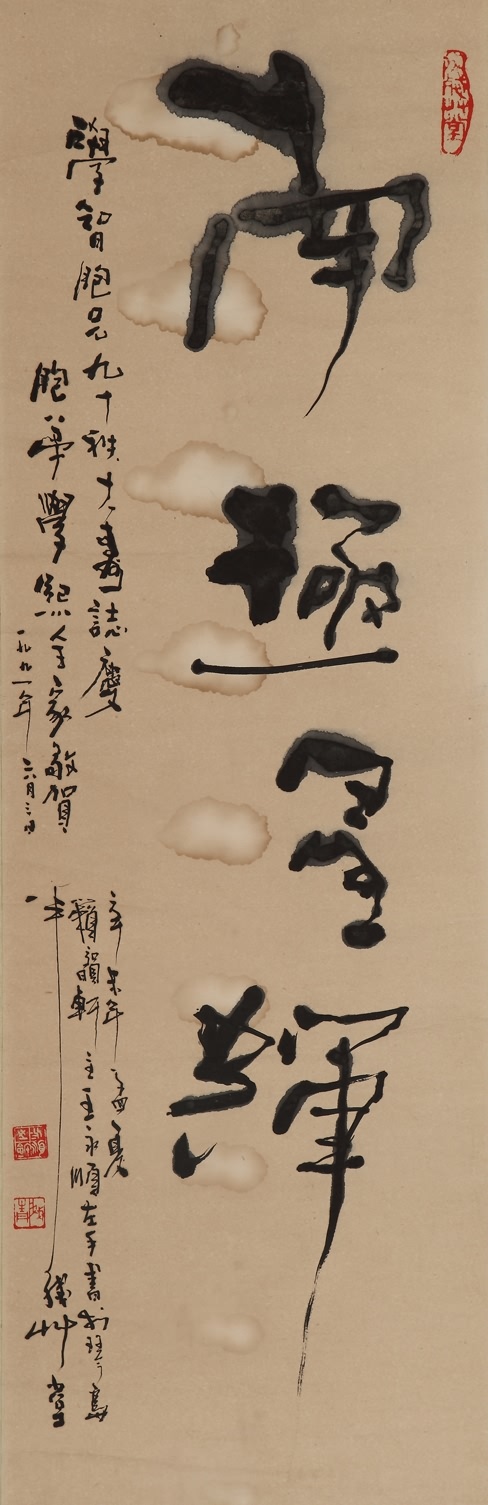 南極星輝
學智胞兄九十秩大壽誌慶
胞弟學熙全家敬賀
一九九一年六月三日
辛未年孟夏
韻軒主王永順左手書於琴島
草堂